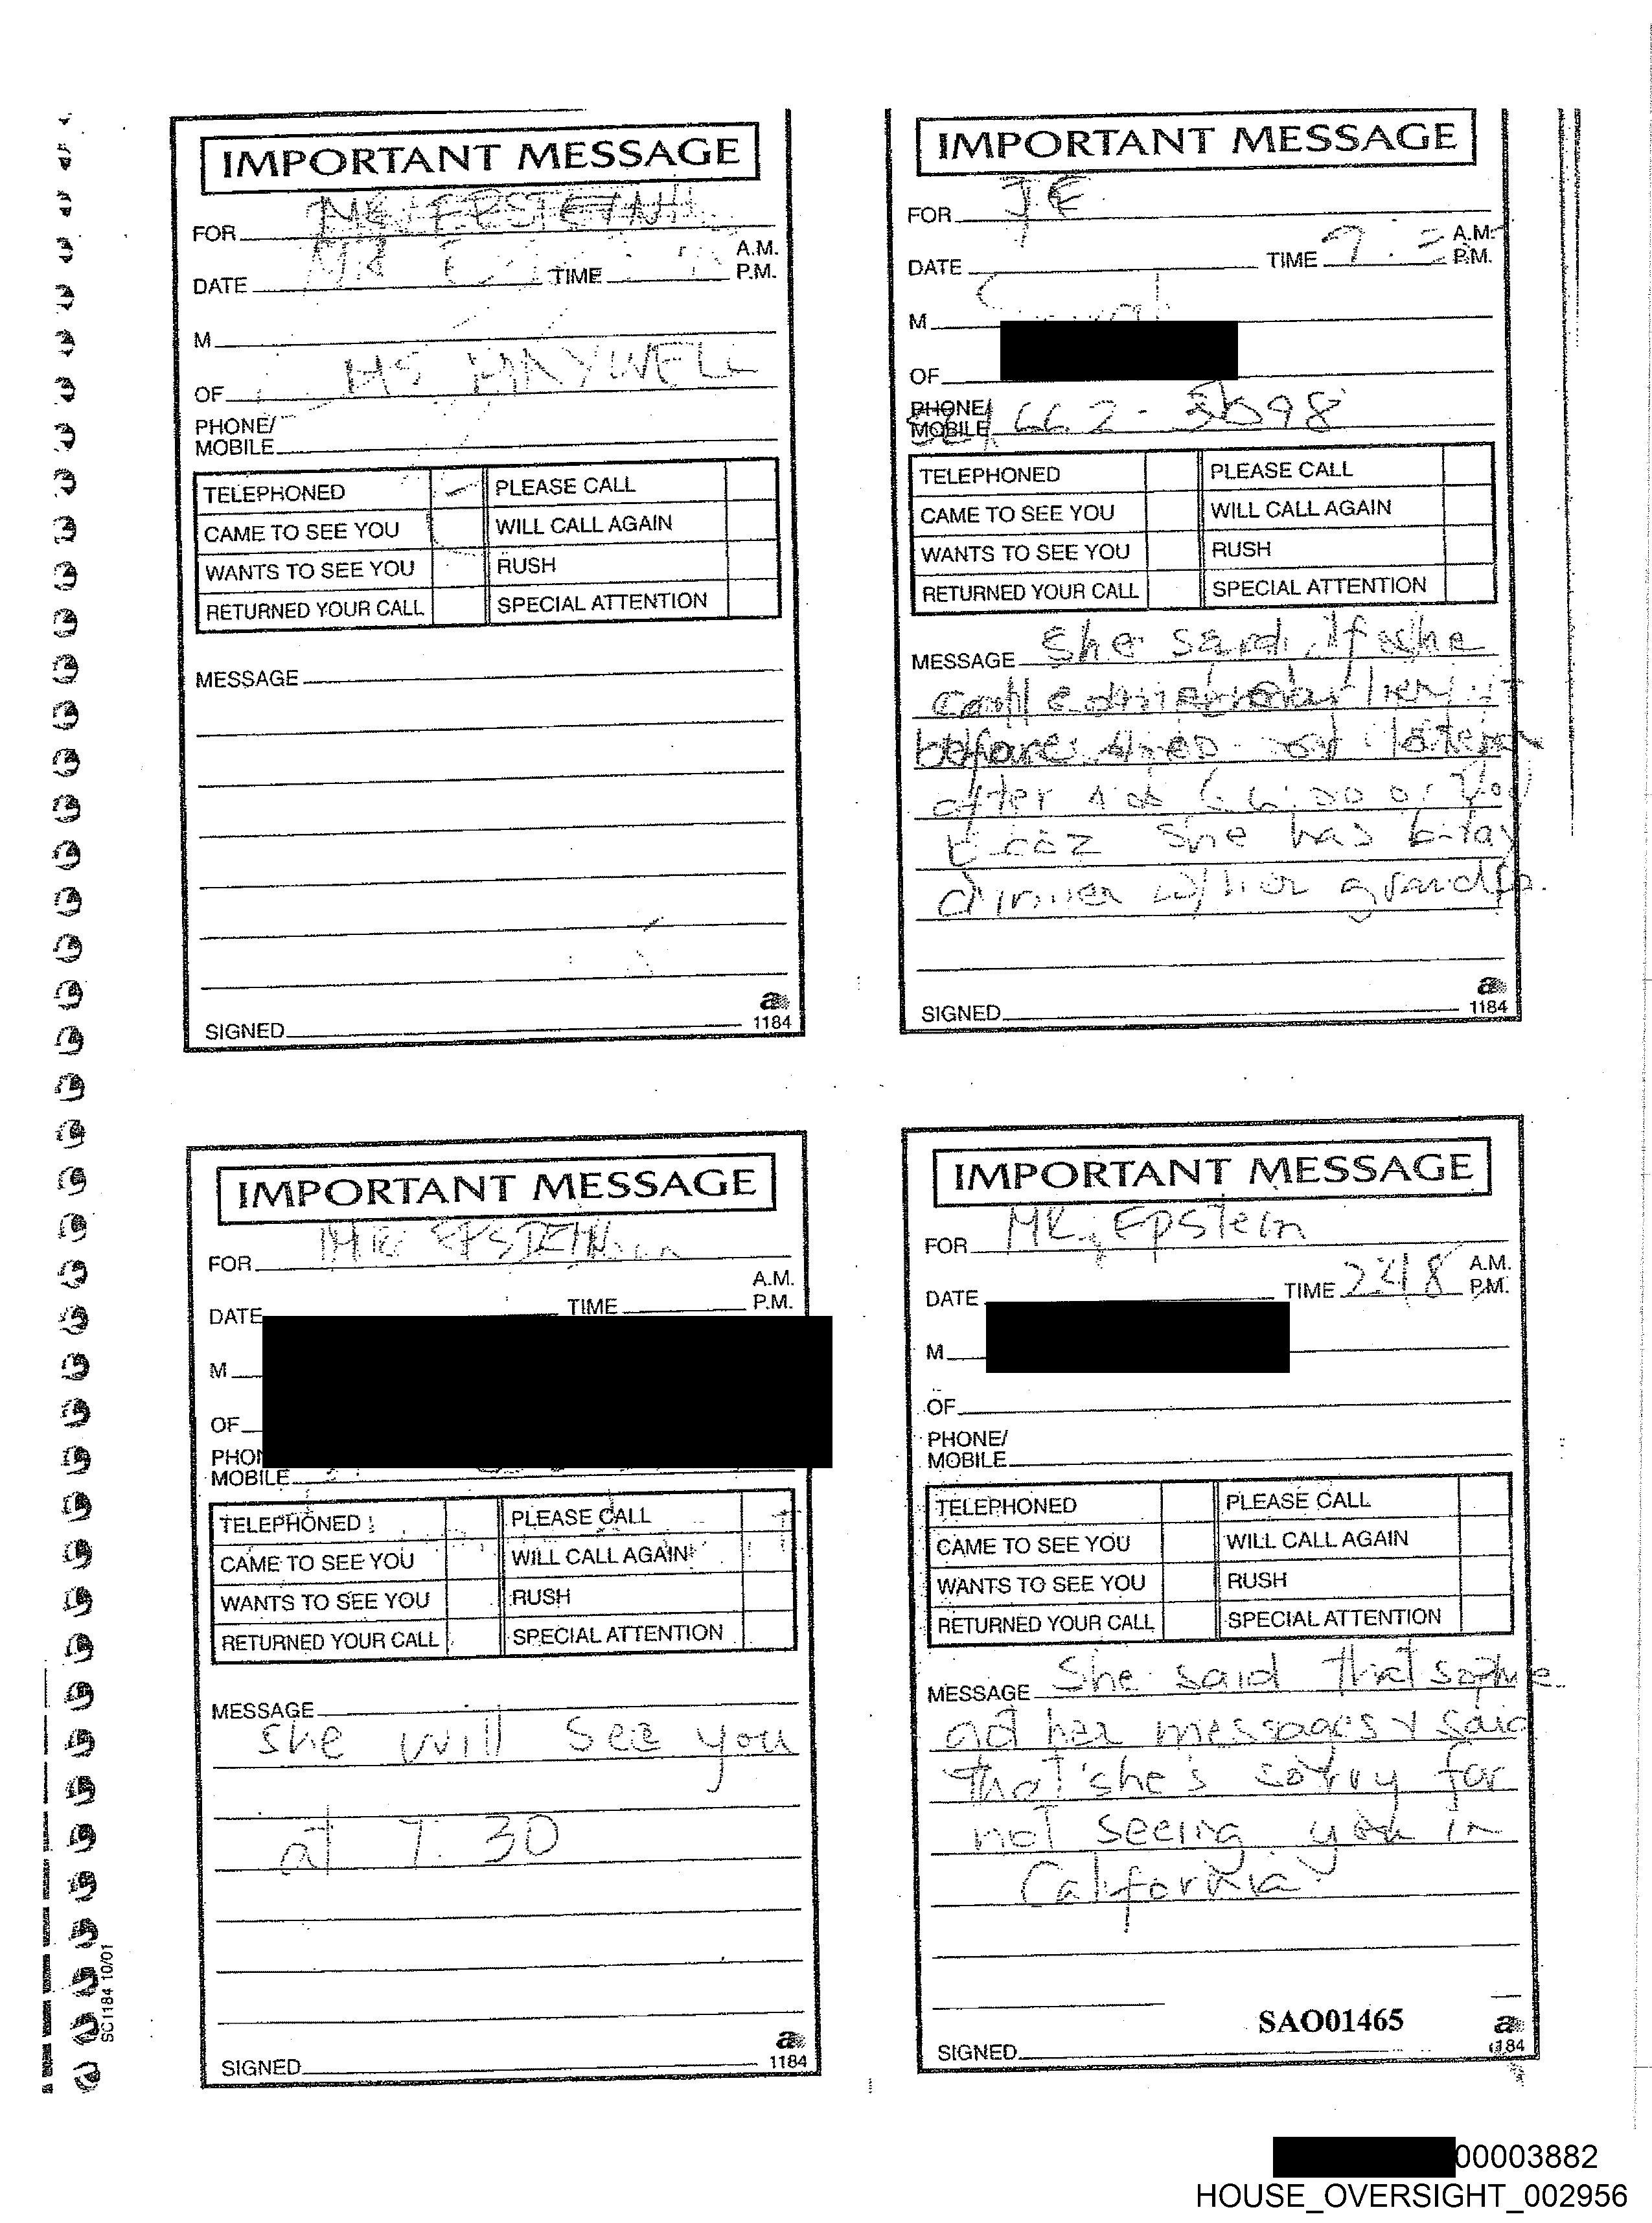 IMPORTANT MESSAGE
FOR MR. EPSTEIN
DATE TIME A.M. P.M.
M
OF MS MAXWELL
PHONE/
MOBILE
TELEPHONED PLEASE CALL
CAME TO SEE YOU WILL CALL AGAIN
WANTS TO SEE YOU RUSH
RETURNED YOUR CALL SPECIAL ATTENTION
MESSAGE
SIGNED
a
1184
IMPORTANT MESSAGE
FOR JE
DATE TIME A.M. P.M.
M
OF
PHONE/
MOBILE
TELEPHONED PLEASE CALL
CAME TO SEE YOU WILL CALL AGAIN
WANTS TO SEE YOU RUSH
RETURNED YOUR CALL SPECIAL ATTENTION
MESSAGE She said, if she
before or
after 6:00 or
she has b-day
dinner w/her
SIGNED
a
1184
IMPORTANT MESSAGE
FOR MR EPSTEIN
DATE TIME A.M. P.M.
M
OF
PHON
MOBILE
TELEPHONED PLEASE CALL
CAME TO SEE YOU WILL CALL AGAIN
WANTS TO SEE YOU RUSH
RETURNED YOUR CALL SPECIAL ATTENTION
MESSAGE
she will see you
at 7:30
SIGNED
a
1184
SC1184 10/01
IMPORTANT MESSAGE
FOR MR. Epstein
DATE TIME 2:48 A.M. P.M.
M
OF
PHONE/
MOBILE
TELEPHONED PLEASE CALL
CAME TO SEE YOU WILL CALL AGAIN
WANTS TO SEE YOU RUSH
RETURNED YOUR CALL SPECIAL ATTENTION
MESSAGE She said that
her messages & said
that she's sorry for
not seeing you in
California
SAO01465
SIGNED
a
1184
00003882
HOUSE_OVERSIGHT_002956